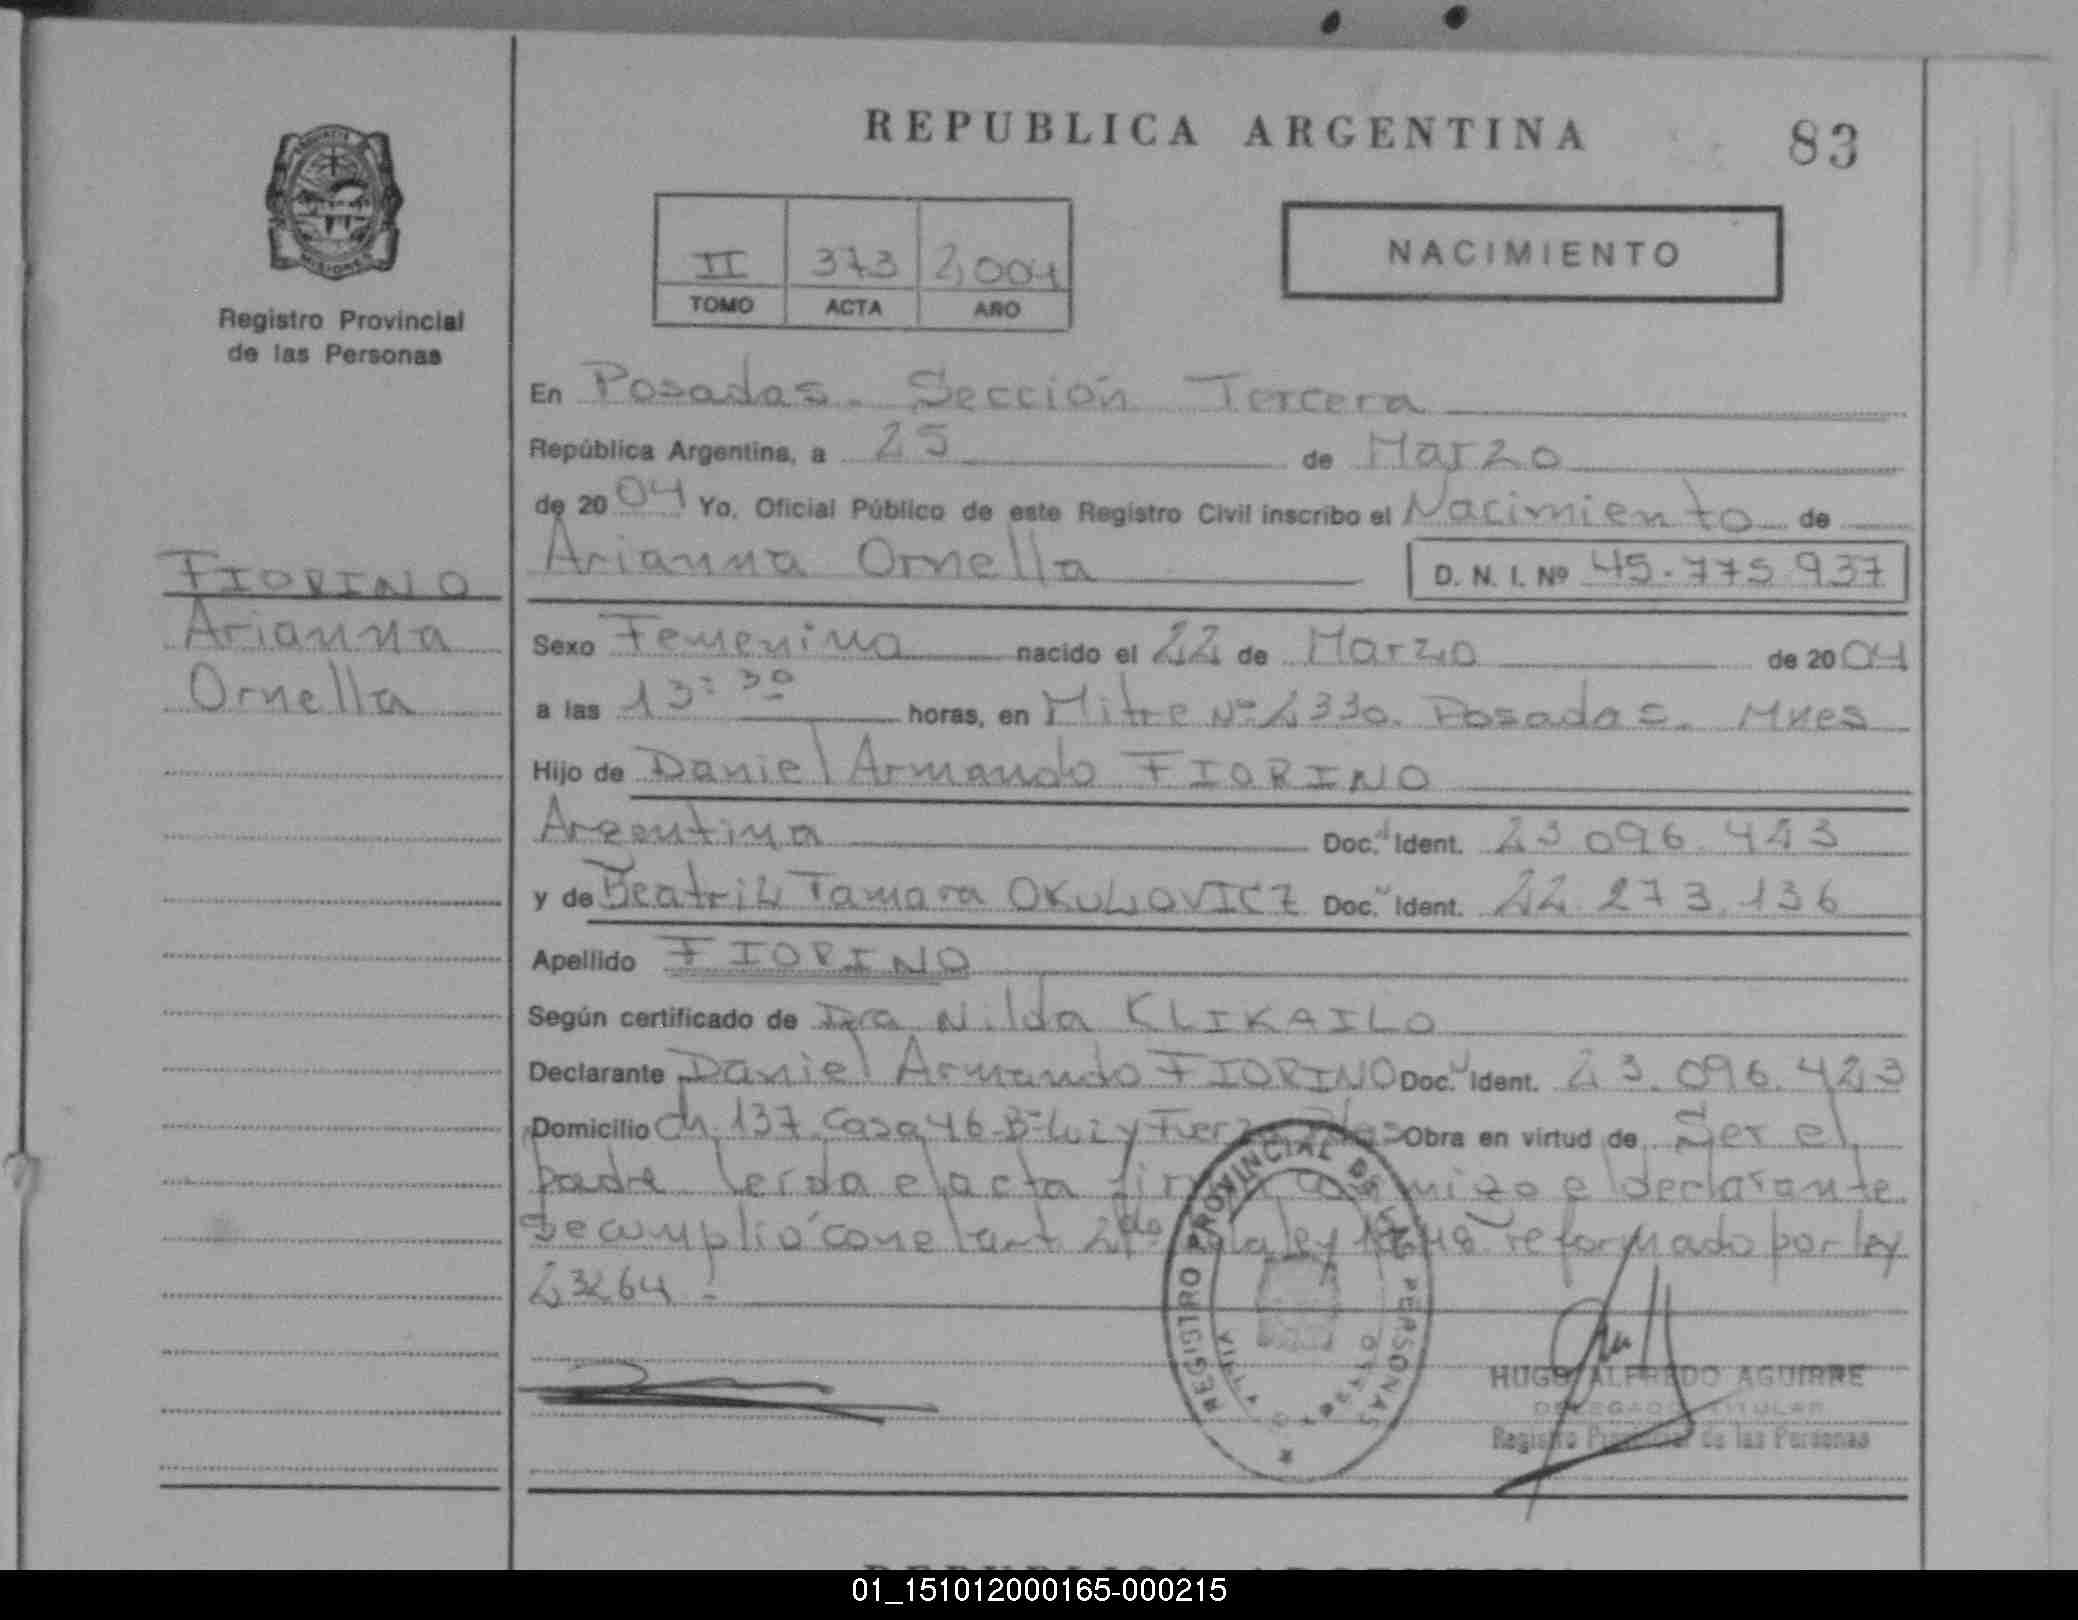 REPUBLICA ARGENTINA
83
MISIONES
Registro Provincial
de las Personas
II 373 2,004
TOMO ACTA AÑO
NACIMIENTO
En Posadas. Sección Tercera
República Argentina, a 25 de Marzo
de 2004 Yo, Oficial Público de este Registro Civil inscribo el Nacimiento de
Arianna Ornella D. N. I. Nº 45.775.937
FIORINO
Arianna
Ornella
Sexo Femenino nacido el 22 de Marzo de 2004
a las 13:30 horas, en Mitre Nº 2330. Posadas. Mnes
Hijo de Daniel Armando FIORINO
Argentina Doc. Ident. 23.096.423
y de Beatriz Tamara OKULOVICZ Doc. Ident. 22.273.136
Apellido FIORINO
Según certificado de Dra Nilda KLIKAILO
Declarante Daniel Armando FIORINO Doc. Ident. 23.096.423
Domicilio Ch. 137 Casa 46 Bº Luz y Fuerza Obra en virtud de Ser el
padre leída el acta firma conmigo el declarante
Se cumplió con el art 2do de la ley reformado por ley
23264.-
REGISTRO PROVINCIAL DE LAS PERSONAS
HUGO ALFREDO AGUIRRE
DELEGADO TITULAR
Registro Provincial de las Personas
01_151012000165-000215